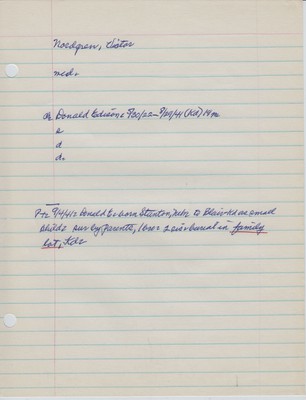 Nordgren, Victor
md.
ch Donald Edison: 9/30/22- 9/29/41 (Kd) 19
s
d
d.
9/4/41: Donald E born Stanton, Nebr to Blair-Kd as small
child: sur by parents, 1 bro: 2 sis burial in family
lot, Kd: